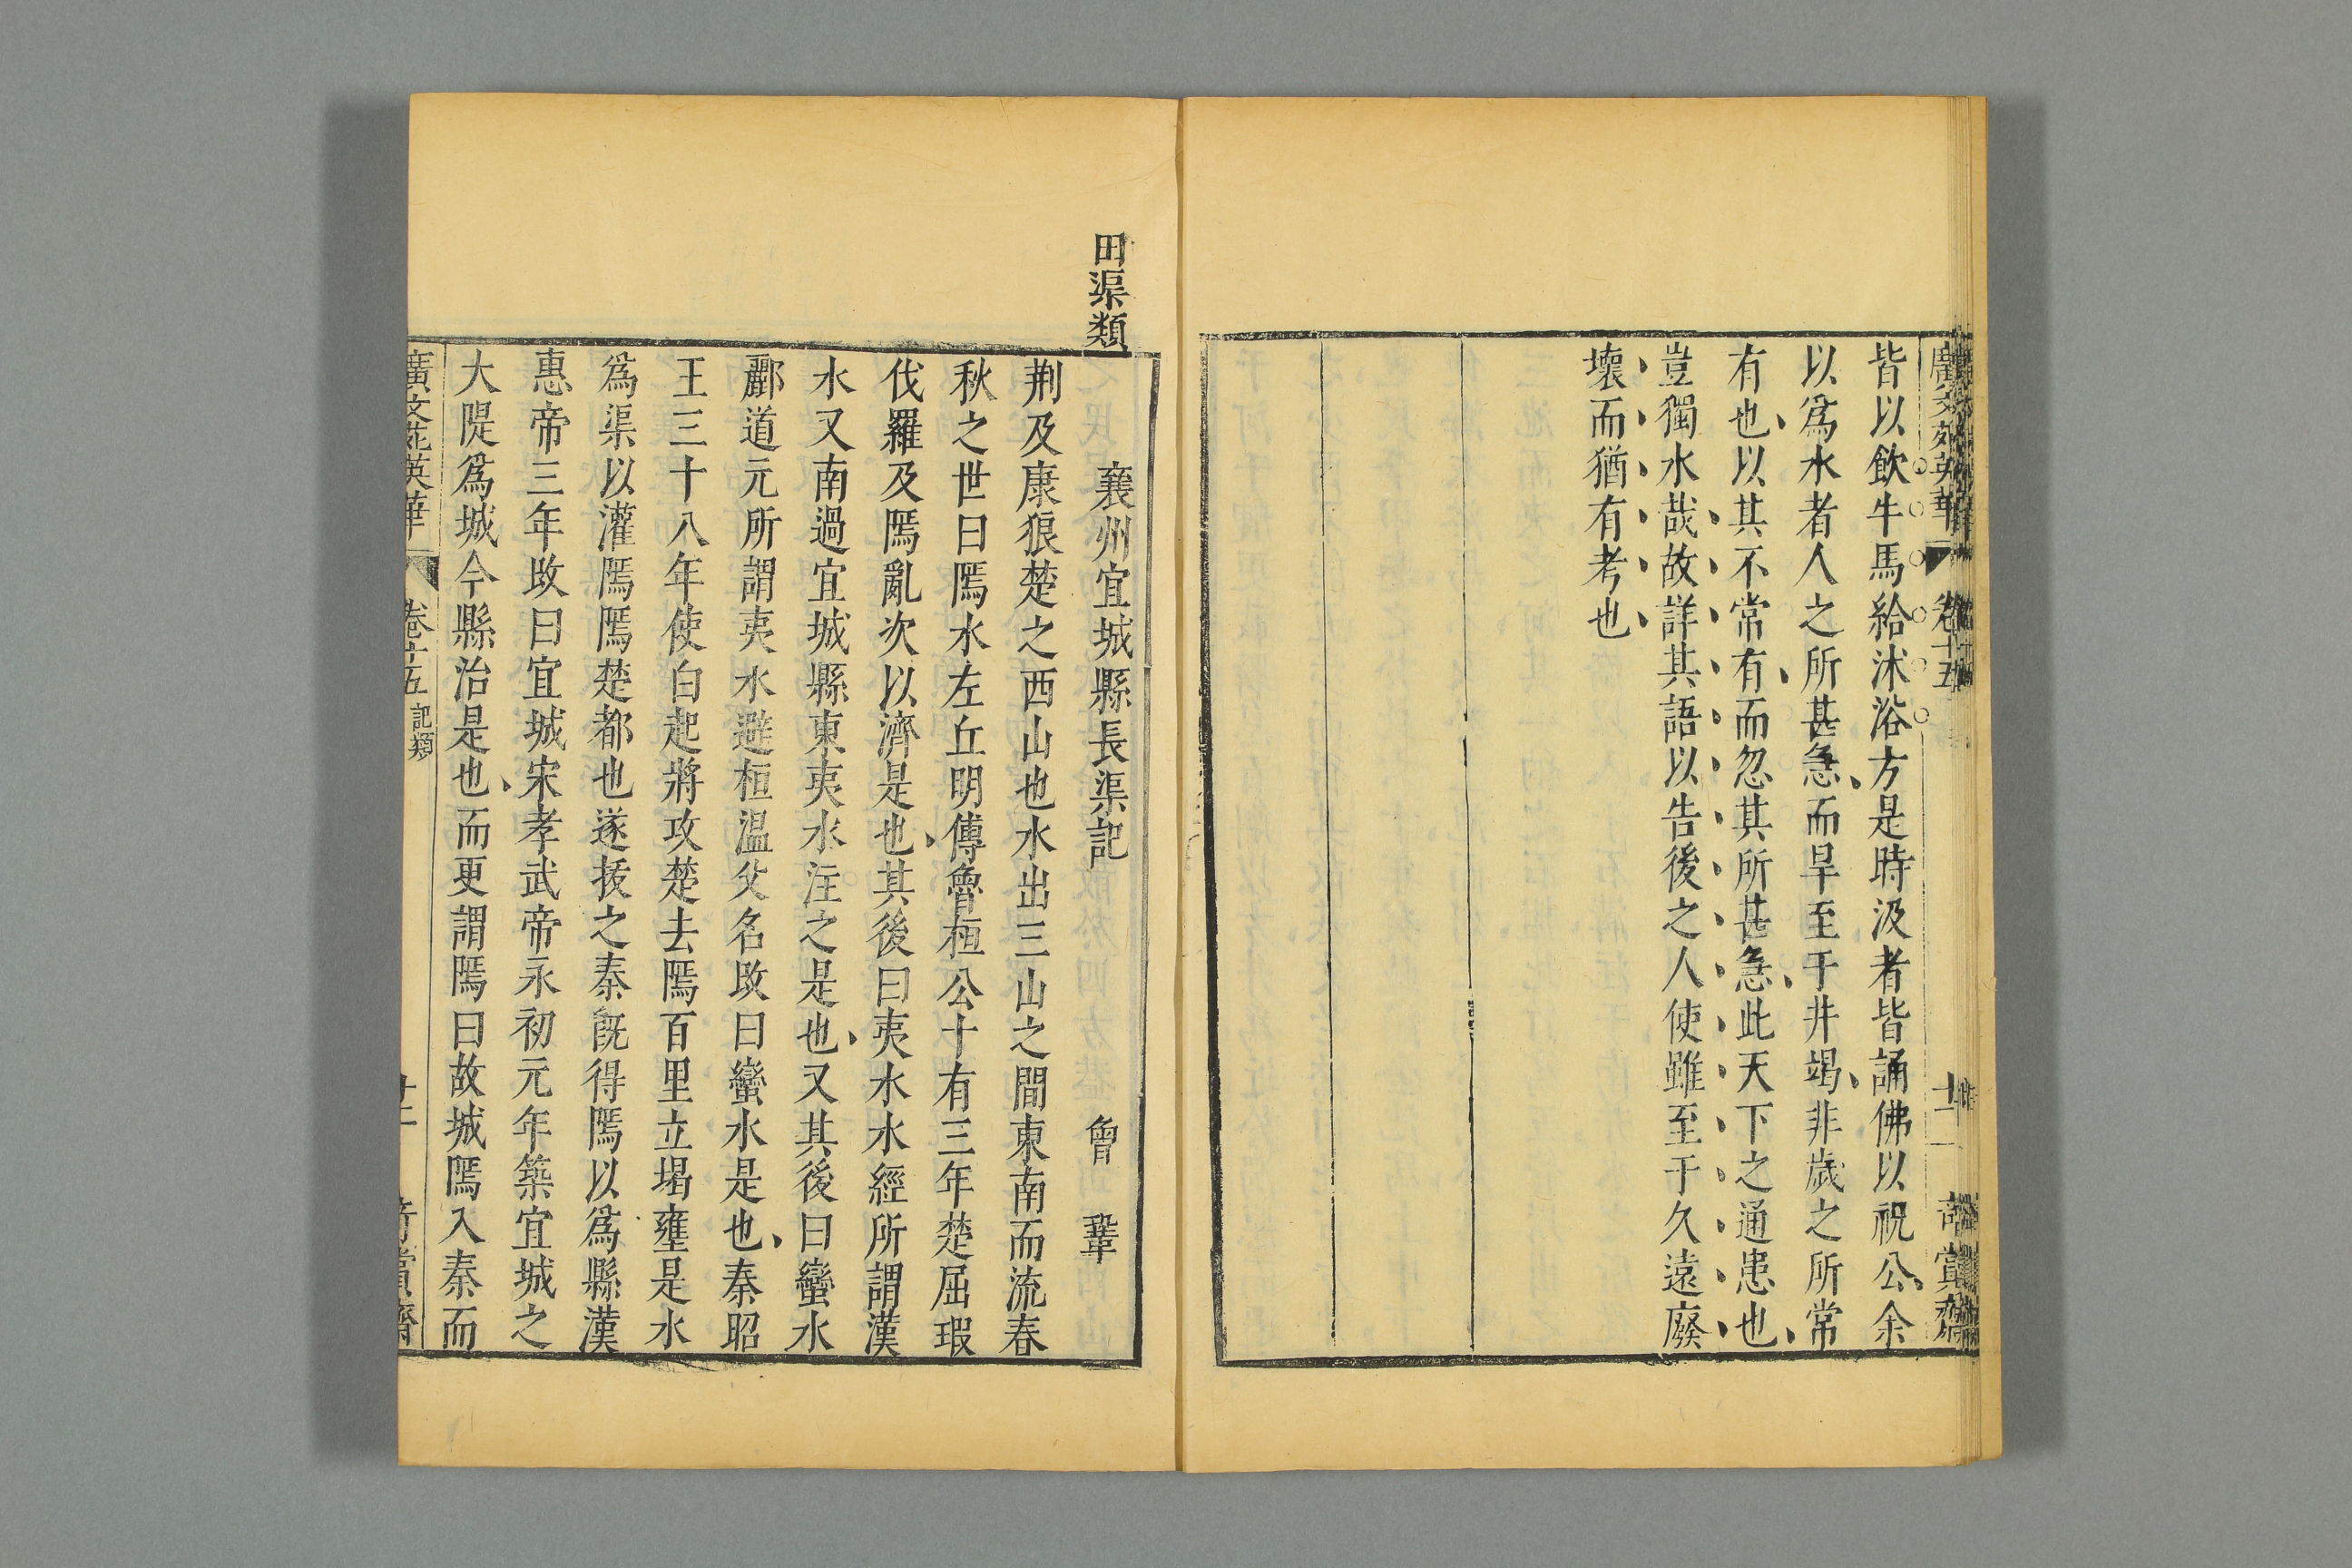 皆以飲牛馬給沐浴方是時汲者皆誦佛以祝公余
以爲水者人之所甚急而旱至于井竭非歲之所常
有也以其不常有而忽其所甚急此天下之通患也
豈獨水哉故詳其語以告後之人使雖至于久遠廢
壞而猶有考也
田渠類
襄州宜城縣長渠記 曾 鞏
荆及康狼楚之西山也水出三山之間東南而流春
秋之世曰隝水左丘明傳魯桓公十有三年楚屈瑕
伐羅及隝亂次以濟是也其後曰夷水水經所謂漢
水又南過宜城縣東夷水注之是也又其後曰蠻水
酈道元所謂夷水避桓温父名改曰蠻水是也秦昭
王三十八年使白起將攻楚去隝百里立堨壅是水
爲渠以灌隝隝楚都也遂拔之秦旣得隝以爲縣漢
惠帝三年改曰宜城宋孝武帝永初元年築宜城之
大隄爲城今縣治是也而更謂隝曰故城隝入秦而
廣文苑英華 卷十五 記類